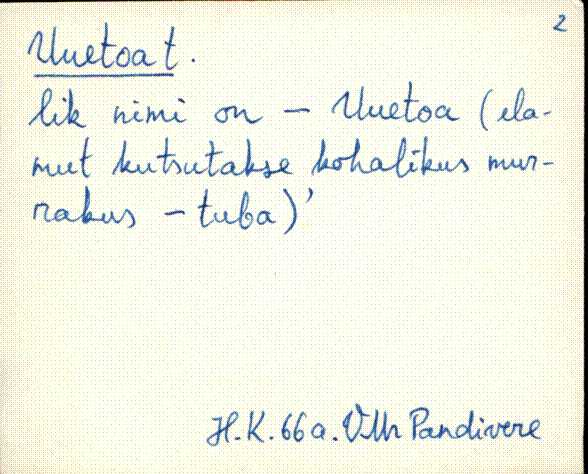 2
Uuetoa t.
lik nimi on – Uuetoa (ela-
mut kutsutakse kohalikus mur-
rakus – tuba)'
H.K. 66 a. VMr Pandivere